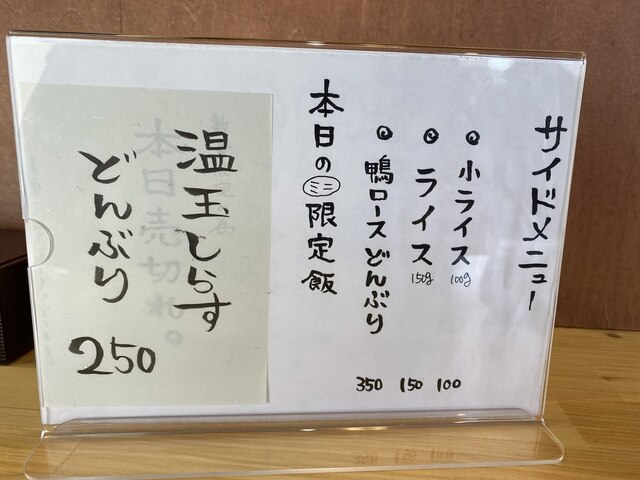 サイドメニュー
◎小ライス 100g 100
◎ライス 150g 150
◎鴨ロースどんぶり 350
本日のミニ限定飯
温玉しらす
どんぶり
250
本日売切れ。